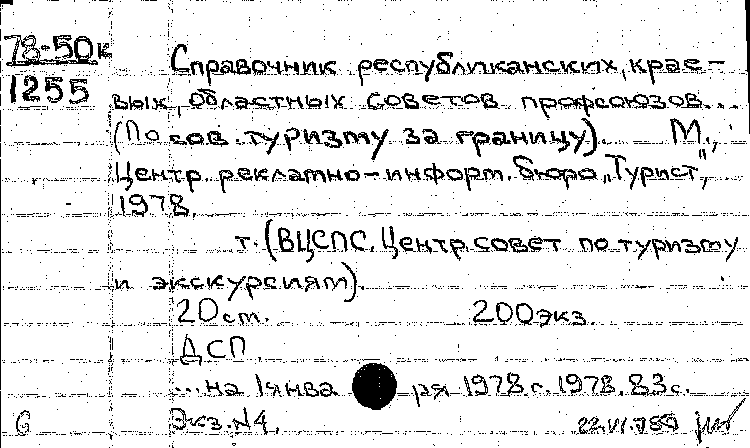 78-50к
1255
Справочник республиканских, крае-
вых, областных советов профсоюзов...
(По сов. туризму за границу). М.,
Центр. рекламно-информ. бюро "Турист",
1978.
т. (ВЦСПС. Центр. совет по туризму
и экскурсиям).
20 см. 200 экз.
ДСП.
...на 1 янва ря 1978 г. 1978. 83 с.
6 Экз. №4.